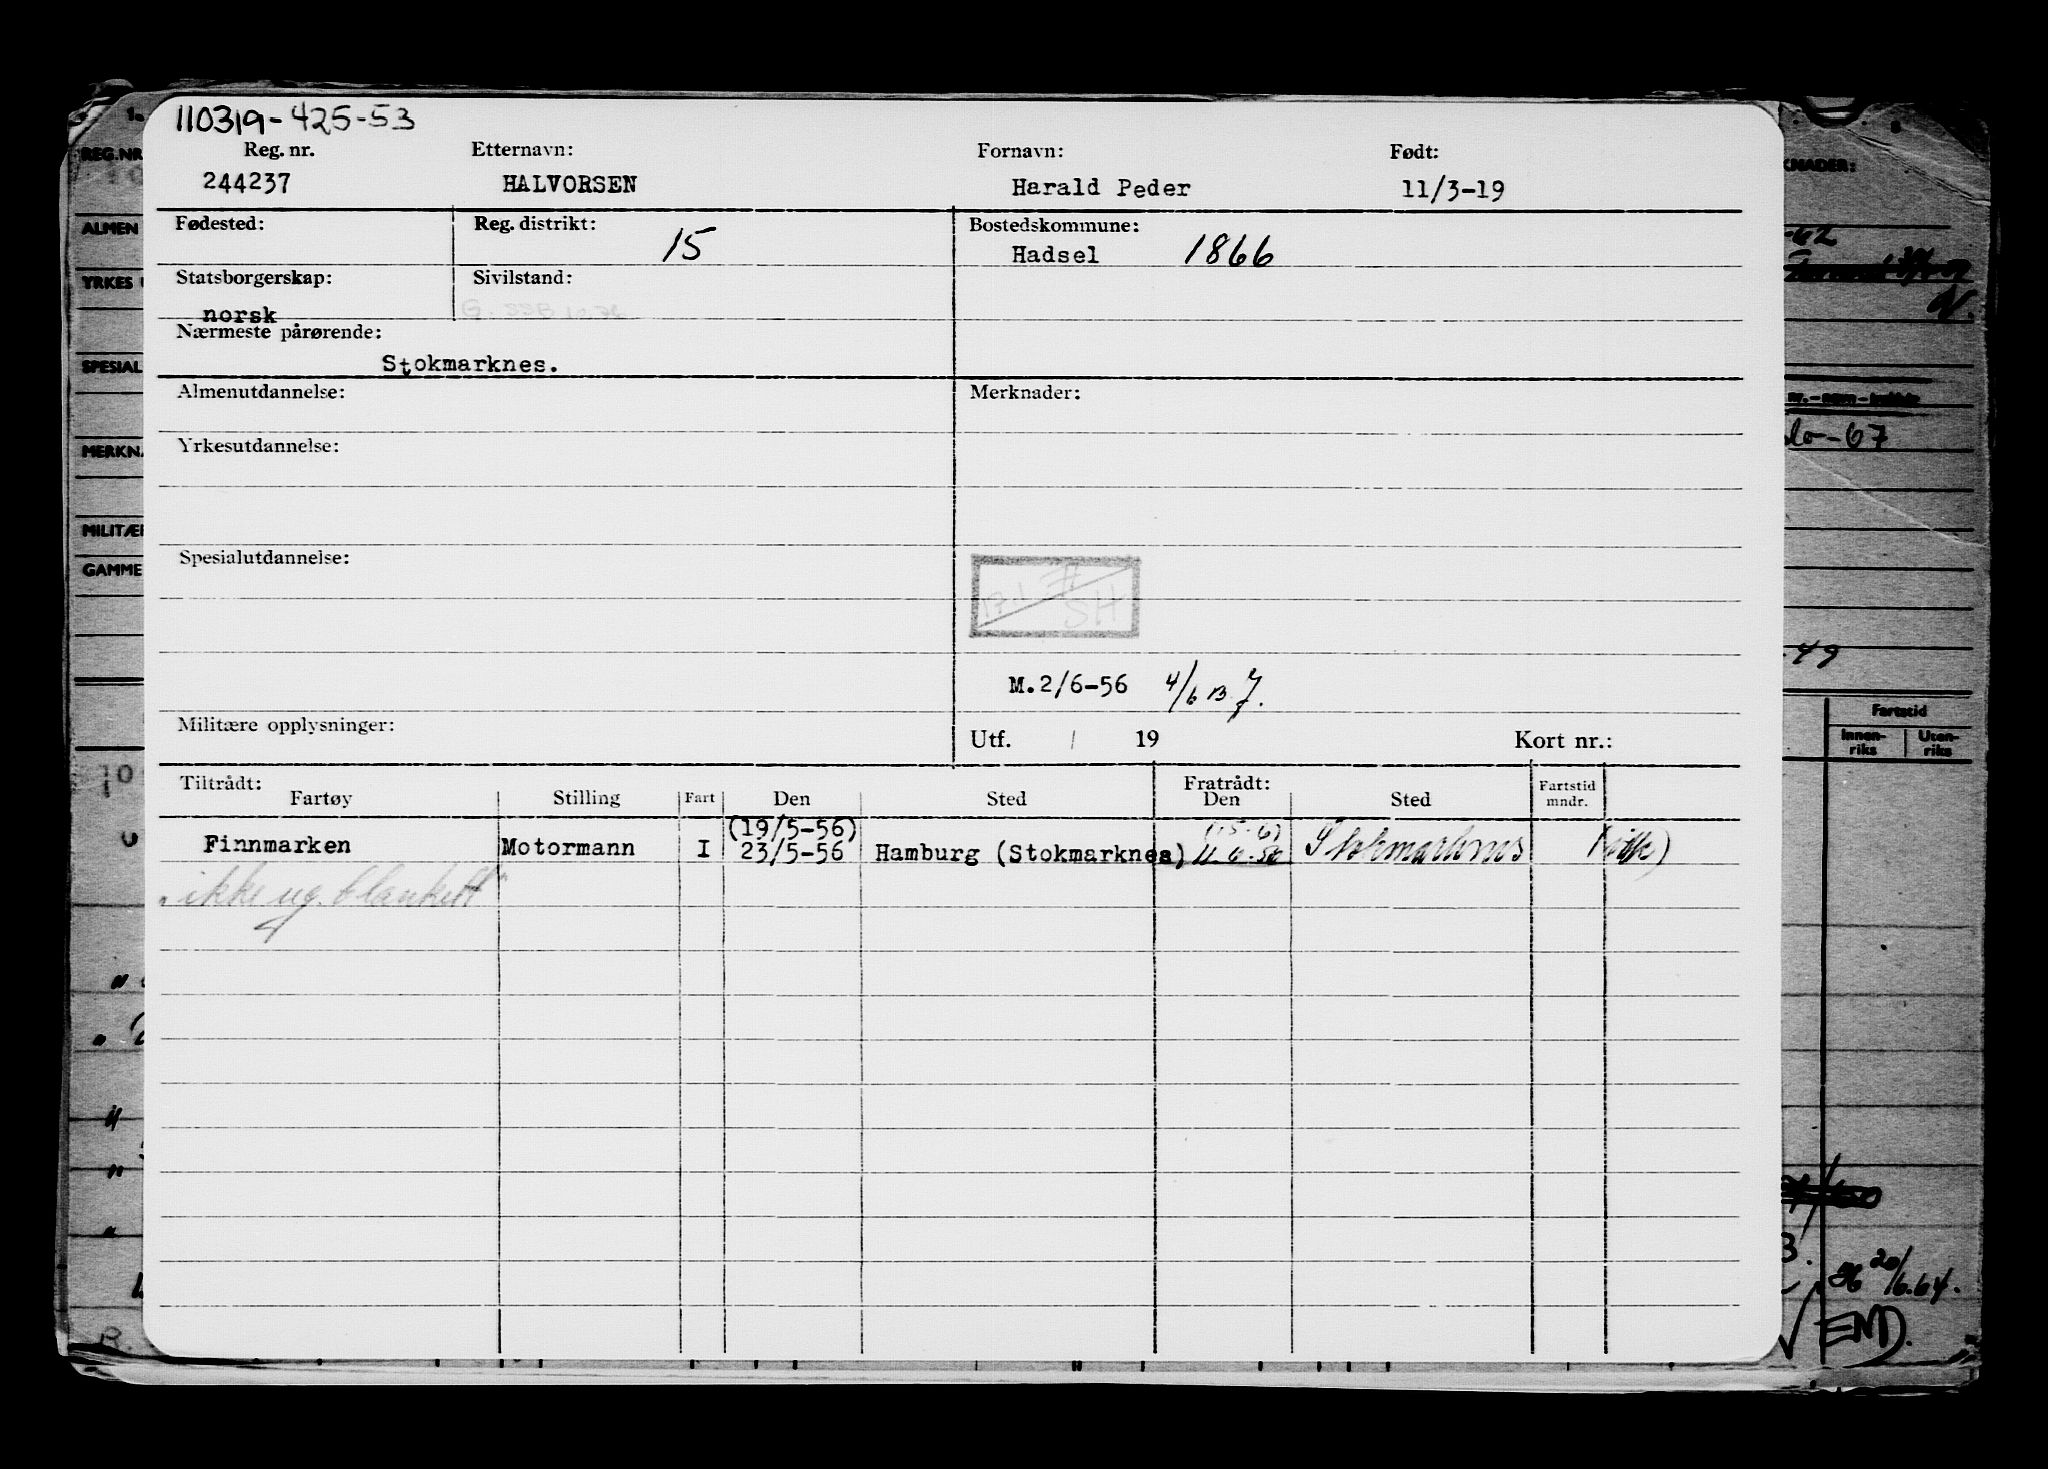 110319-425-53
Reg. nr. Etternavn: Fornavn: Født:
244237 HALVORSEN Harald Peder 11/3-19
Fødested: Reg. distrikt: 15 Bostedskommune:
Hadsel 1866
Statsborgerskap: Sivilstand:
norsk
Nærmeste pårørende:
Stokmarknes.
Almenutdannelse: Merknader:
Yrkesutdannelse:
Spesialutdannelse:
17.1
SH
M.2/6-56 4/6 B
Militære opplysninger:
Utf. / 19 Kort nr.:
Tiltrådt: Fratrådt:
Fartøy Stilling Fart Den Sted Den Sted Fartstid mndr.
(19/5-56)
Finnmarken Motormann I 23/5-56 Hamburg (Stokmarknes) 11.6.56 Stokmarknes
"ikke ug. blankett"
REG.NR
ALMEN
YRKES
SPESIAL
MERKN
MILITÆR
GAMME
KNADER:
-62
-67
49
Fartstid
Innen-riks Uten-riks
20/6.64.
END.